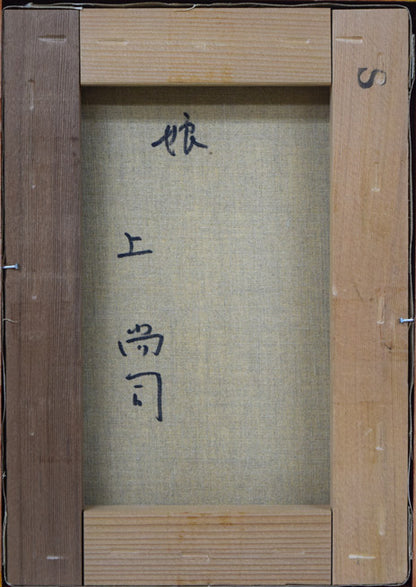 娘
上
尚司
S